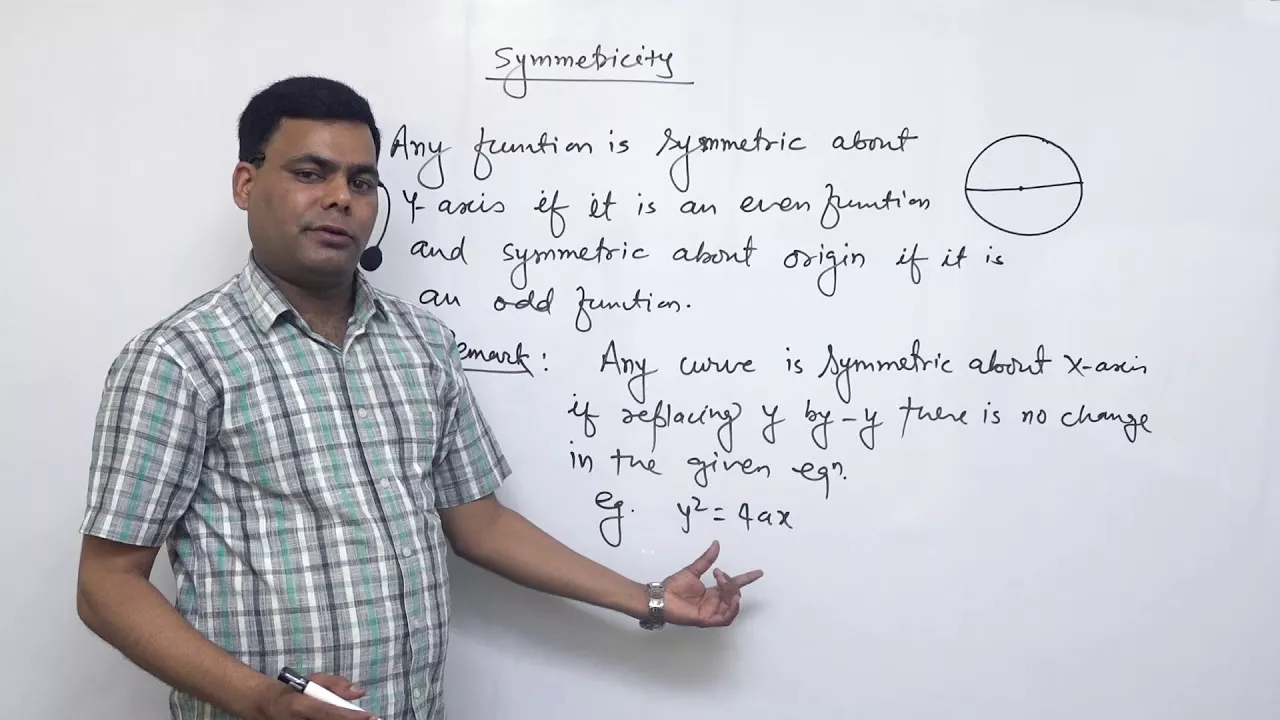 Symmetricity
Any function is symmetric about
Y-axis if it is an even function
and symmetric about origin if it is
an odd function.
emark : Any curve is symmetric about X-axis
if replacing y by -y there is no change
in the given eqⁿ.
eg. y² = 4ax